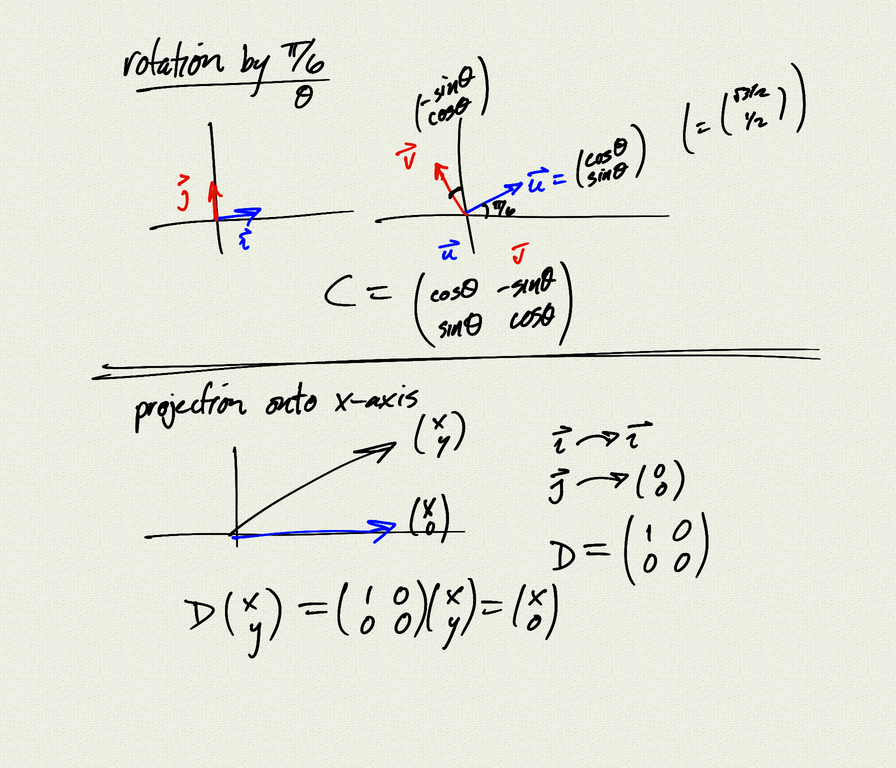 rotation by π/6
θ
j⃗
i⃗
(-sinθ
cosθ)
v⃗
u⃗ = (cosθ
sinθ)
(= (√3/2
1/2))
π/6
u⃗ v⃗
C = (cosθ -sinθ
sinθ cosθ)
projection onto x-axis
(x
y)
(x
0)
i⃗ → i⃗
j⃗ → (0
0)
D = (1 0
0 0)
D(x
y) = (1 0
0 0)(x
y) = (x
0)